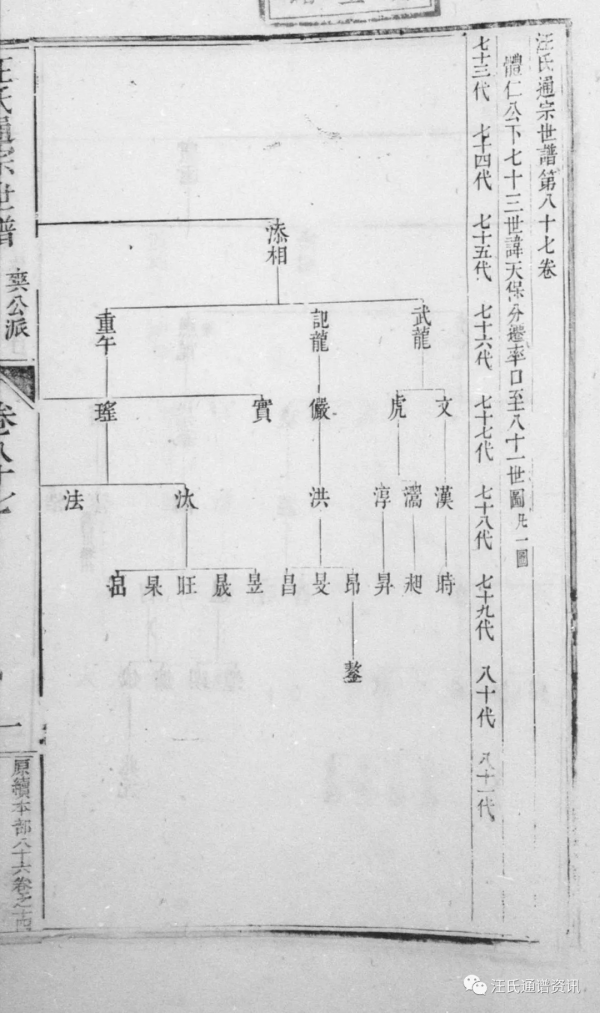 汪氏通宗世譜第八十七卷
體仁公下七十三世諱天保分遷率口至八十一世圖凡一圖
七十三代 七十四代 七十五代 七十六代 七十七代 七十八代 七十九代 八十代 八十一代
添相
武龍 記龍 重午
文 虎 儼 實 瑤
漢 濡 淳 洪 汰 法
時 昶 昇 昂 旻 昌 昱 晟 旺 杲
鏊
汪氏通宗世譜 爽公派 卷八十七
一
原續本部六十六卷之十四
汪氏通谱资讯